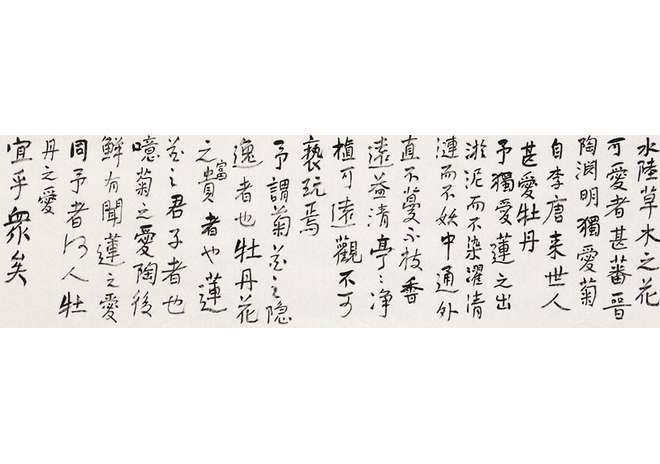 水陸草木之花
可愛者甚蕃晉
陶淵明獨愛菊
自李唐来世人
甚愛牡丹
予獨愛蓮之出
淤泥而不染濯清
漣而不妖中通外
直不蔓不枝香
遠益清亭〻净
植可遠觀不可
褻玩焉
予謂菊花〻之隐
逸者也牡丹花
之富貴者也蓮
花之君子者也
噫菊之愛陶後
鮮有聞蓮之愛
同予者何人牡
丹之愛
宜乎衆矣